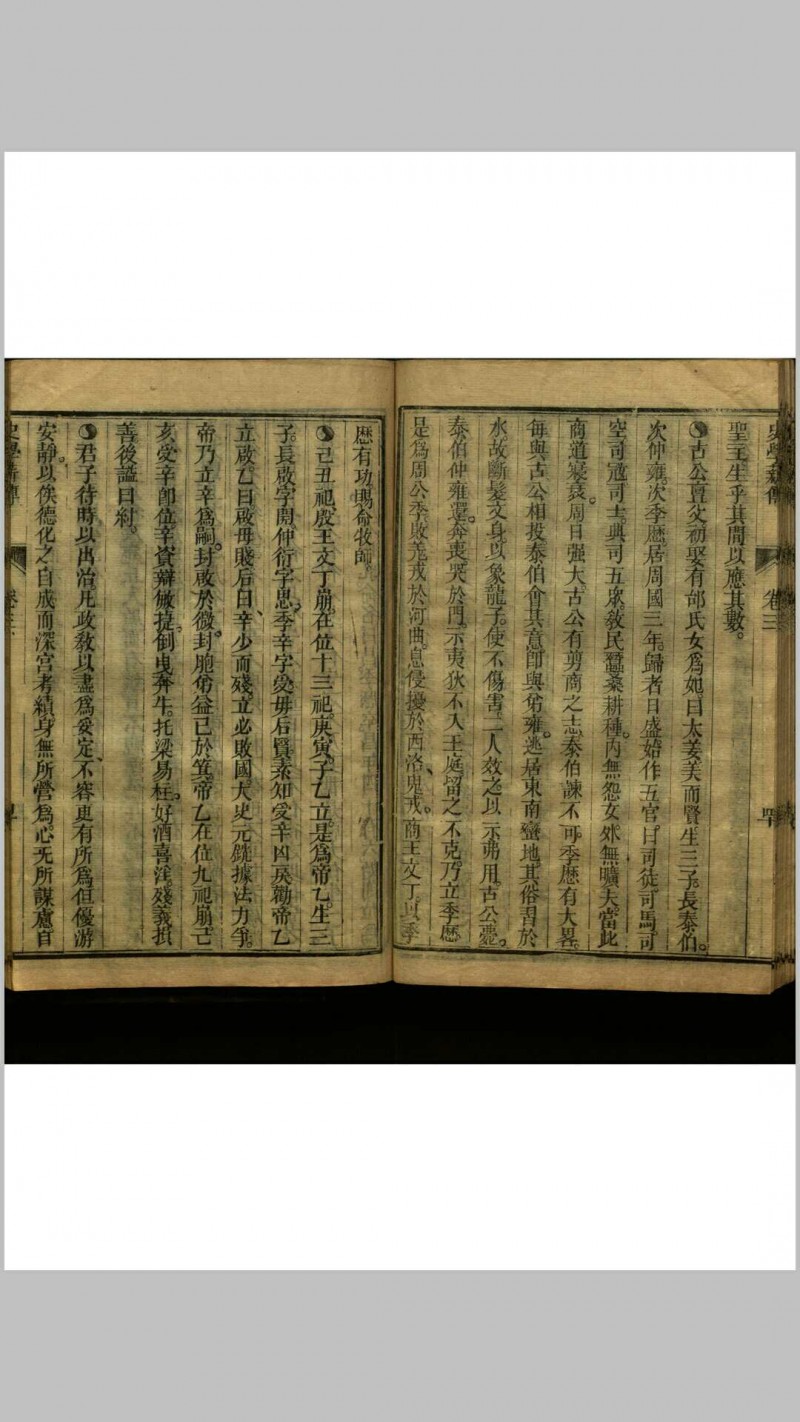 卷三
聖王生乎其間以應其數。
古公亶父初娶有邰氏女爲妃曰太姜美而賢生三子。長泰伯。
次仲雍。次季歷。居周國三年。歸者日盛始作五官。曰司徒司馬司
空司冦司士。典司五衆敎民蠶桑耕種。内無怨女外無曠夫。當此
商道寖衰。周日强大古公有剪商之志泰伯諫不可季歷有大畧。
每與古公相投泰伯會其意卽與弟雍。逃居東南蠻地。其俗習於
水。故斷髮文身。以象龍子。使不傷害。二人效之以示弗用。古公薨。
泰伯仲雍還。奔喪。哭於門。示夷狄不入王庭。留之不克。乃立季歷
是爲周公季。敗羌戎於河曲。息侵擾於西洛、鬼戎。商王文丁以季
歷有功。賜命牧師。
己丑祀。殷王文丁崩。在位十三祀。庚寅。子乙立。是爲帝乙。生三
子。長啟字開。仲衍字思。季辛字受母后賢。素知受辛凶戾勸帝乙
立啟。乙曰啟毋賤。后曰、辛少而殘。立必敗國大史元銑據法力爭。
帝乃立辛爲嗣。封啟於微。封胞弟益已於箕。帝乙在位九祀崩。己
亥受辛卽位。辛資辯儆捷。倒曳奔牛。托梁易柱。好酒喜淫。殘義損
善後謚曰紂。
君子待時以出治凡政敎以盡爲妥定、不容更有所爲但優游
安靜。以俟德化之自成而深宮考績身無所營爲。心无所謀慮自
卷三